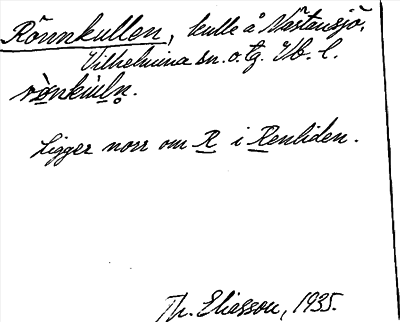 Rönnkullen, kulle å Nästansjö,
Vilhelmina sn. o. tg. Vb. l.
rö̀nkùln̥.
Ligger norr om R i Renliden.
Th. Eliasson, 1935.